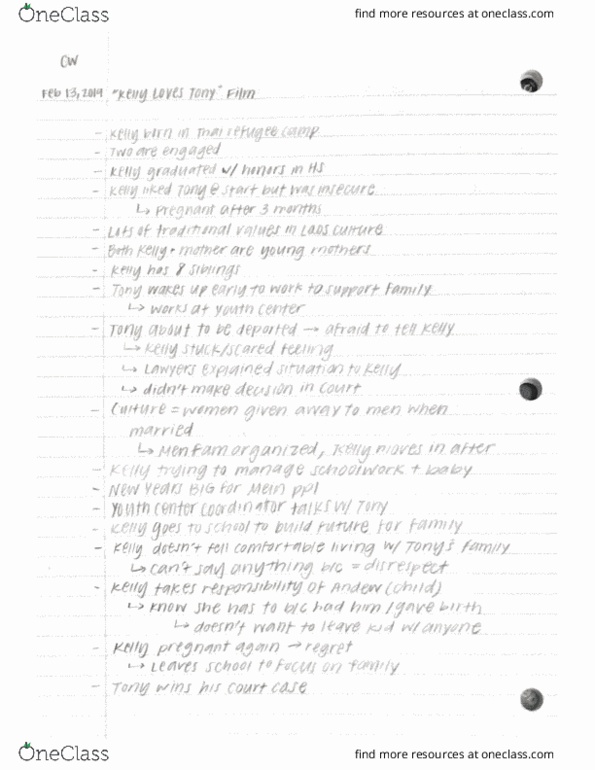 OneClass
find more resources at oneclass.com
CW
Feb 13, 2019 "Kelly Loves Tony" Film
- Kelly born in Thai refugee camp
- Two are engaged
- Kelly graduated w/ honors in HS
- Kelly liked Tony @ start but was insecure
↳ pregnant after 3 months
- Lots of traditional values in Laos culture
- Both Kelly + mother are young mothers
- Kelly has 8 siblings
- Tony wakes up early to work to support family
↳ works at youth center
- Tony about to be deported → afraid to tell Kelly
↳ Kelly stuck/scared feeling
↳ Lawyers explained situation to Kelly
↳ didn't make decision in court
- Culture = women given away to men when
married
↳ Men fam organized, Kelly moves in after
- Kelly trying to manage schoolwork + baby
- New Years BIG for Mein ppl
- Youth center coordinator talks w/ Tony
- Kelly goes to school to build future for family
- Kelly doesn't fell comfortable living w/ Tony's family
↳ can't say anything b/c = disrespect
- Kelly takes responsibility of Andew (child)
↳ know she has to b/c had him / gave birth
↳ doesn't want to leave kid w/ anyone
- Kelly pregnant again → regret
↳ Leaves school to focus on family
- Tony wins his court case
OneClass
find more resources at oneclass.com